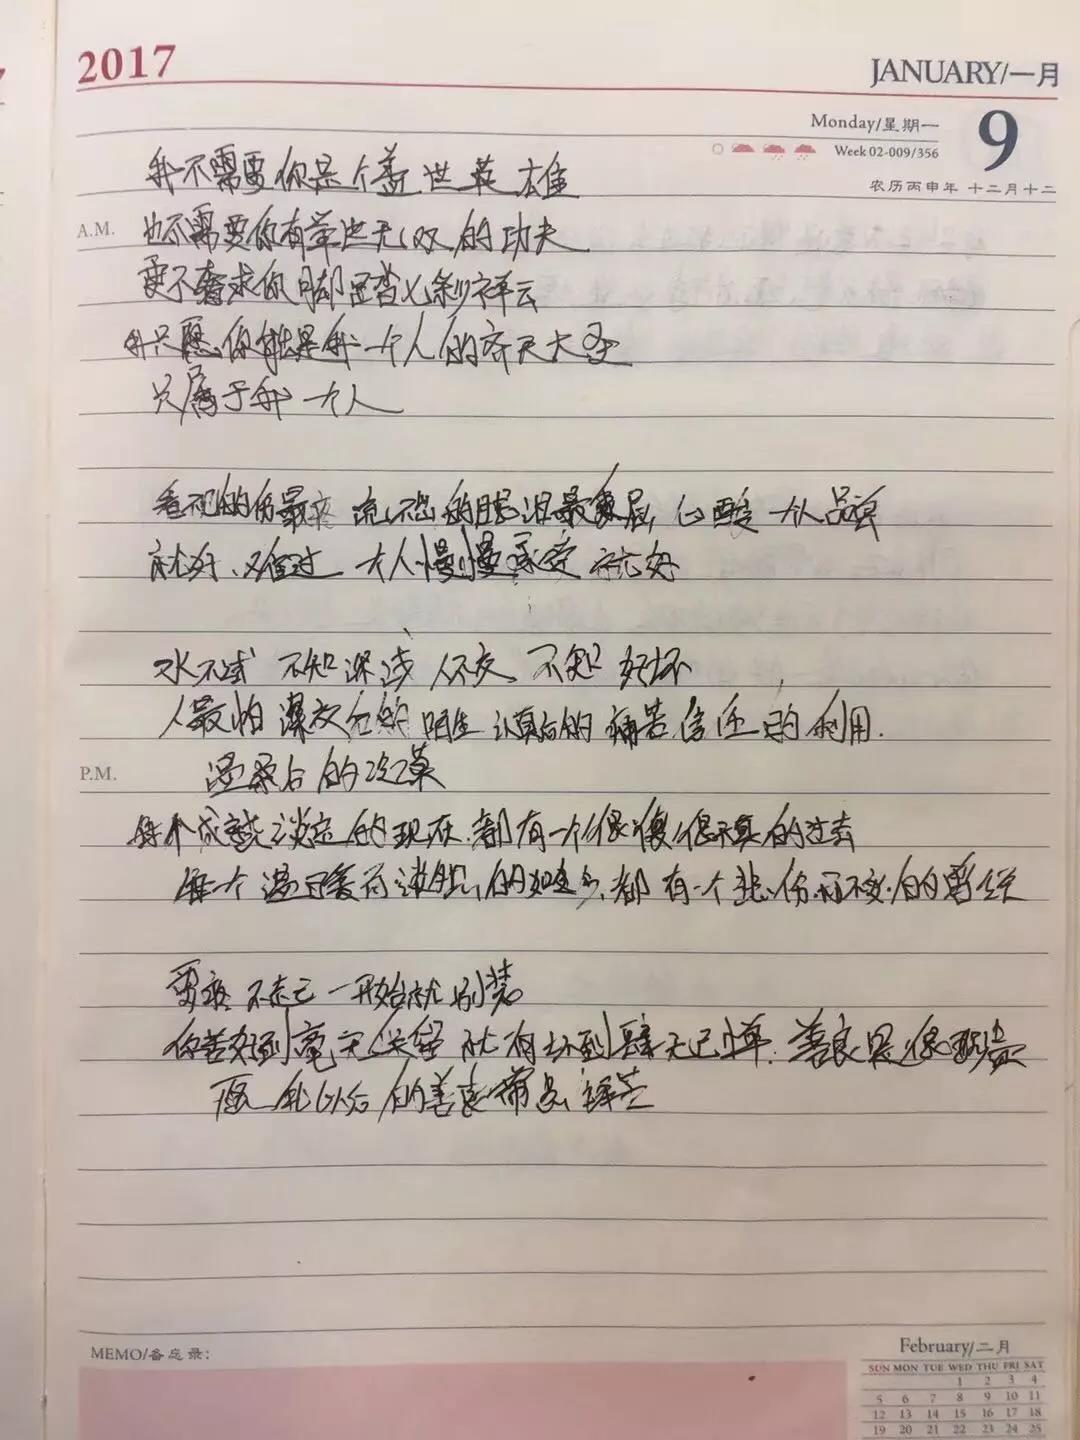 2017
JANUARY/一月
Monday/星期一
9
Week 02-009/356
农历丙申年 十二月十二
我不需要你是个盖世英雄
A.M.
也不需要你有举世无双的功夫
更不奢求你脚踏七彩祥云
我只愿你能是我一个人的齐天大圣
只属于我一个人
看不见的伤最疼 流不出的眼泪最 心酸一个人品尝
就好、难过一个人慢慢承受就好
水不试 不知深浅 人不交 不知好坏
人最怕深交后的陌生 认真后的痛苦 信任后的利用.
温柔后的冷漠
P.M.
每个成熟淡定的现在,都有一个很傻很天真的过去
每一个温暖而 的 ,都有一个悲伤而不 的曾经
要走 一开始就别装
你若好到毫无保留 就有坏到肆无忌惮. 善良是很珍贵
愿我以后的善良带点锋芒
MEMO/备忘录:
February/二月
SUN MON TUE WED THU FRI SAT
1 2 3 4
5 6 7 8 9 10 11
12 13 14 15 16 17 18
19 20 21 22 23 24 25